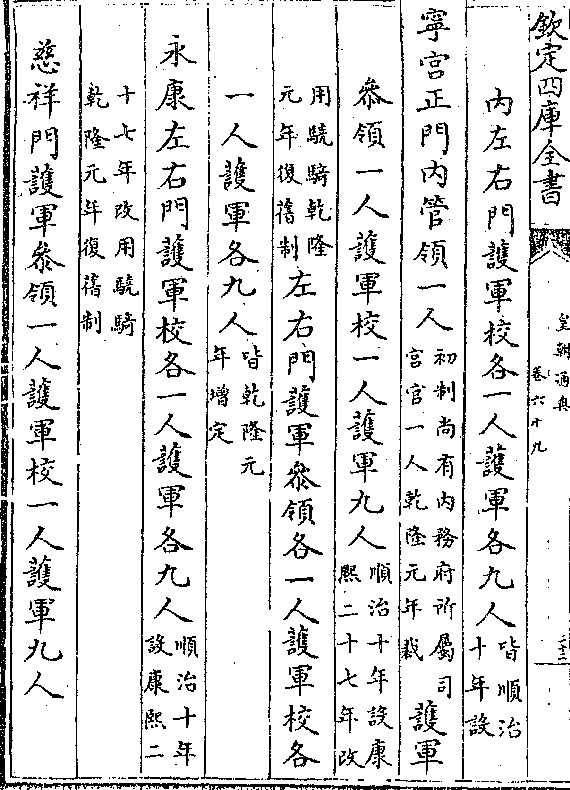 欽定四庫全書
皇朝通典
卷六十九
內左右門護軍校各一人護軍各九人皆順治十年設
寧宮正門內管領一人初制尚有內務府所屬司宮官一人乾隆元年裁護軍
叅領一人護軍校一人護軍九人順治十年設康熙二十七年改
用驍騎乾隆元年復舊制左右門護軍叅領各一人護軍校各
一人護軍各九人皆乾隆元年增定
永康左右門護軍校各一人護軍各九人順治十年設康熙二
十七年改用驍騎乾隆元年復舊制
慈祥門護軍叅領一人護軍校一人護軍九人